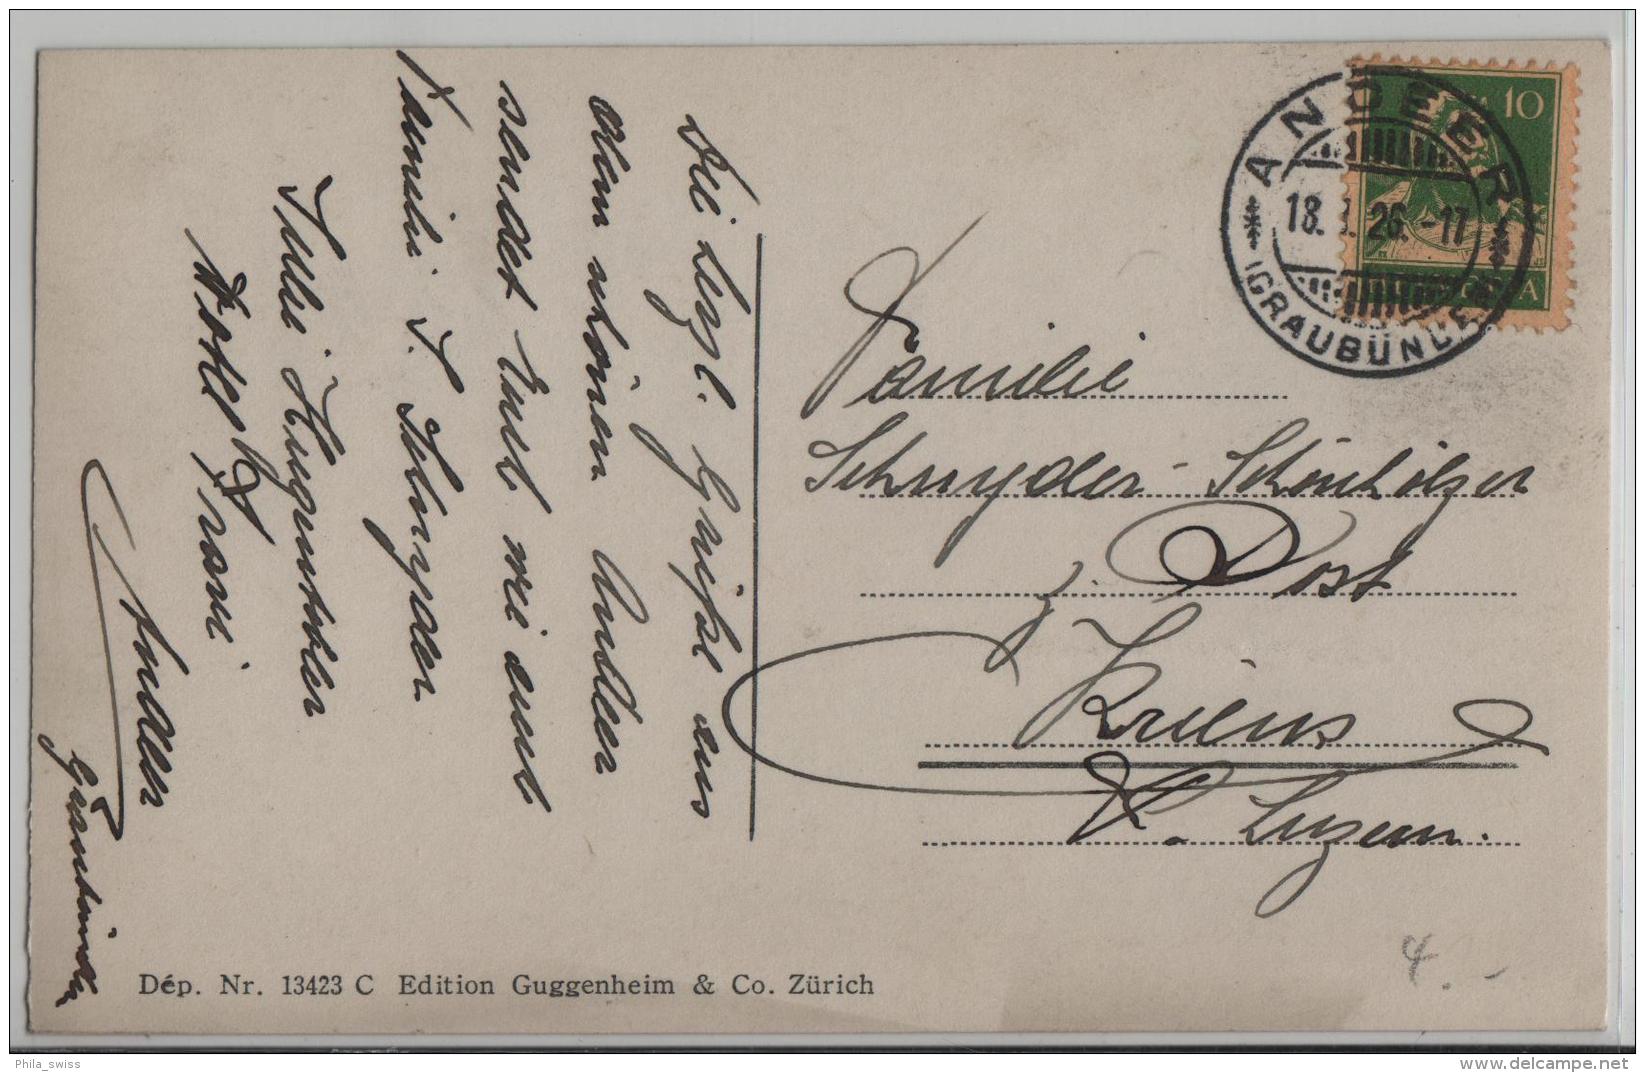 Die herzl. Grüße aus
dem schönen Andeer
sendet Euch wie auch
Familie F. Schnyder
Hugentobler
Hotel Fravi
Andeer
Graubünden
Familie
Schnyder-Schönholzer
z. Post
Kriens
K. Luzern.
ANDEER
18. 26.-17
(GRAUBÜNDEN)
10
HELVETIA
Dép. Nr. 13423 C Edition Guggenheim & Co. Zürich
4.-
Phila_swiss
www.delcampe.net